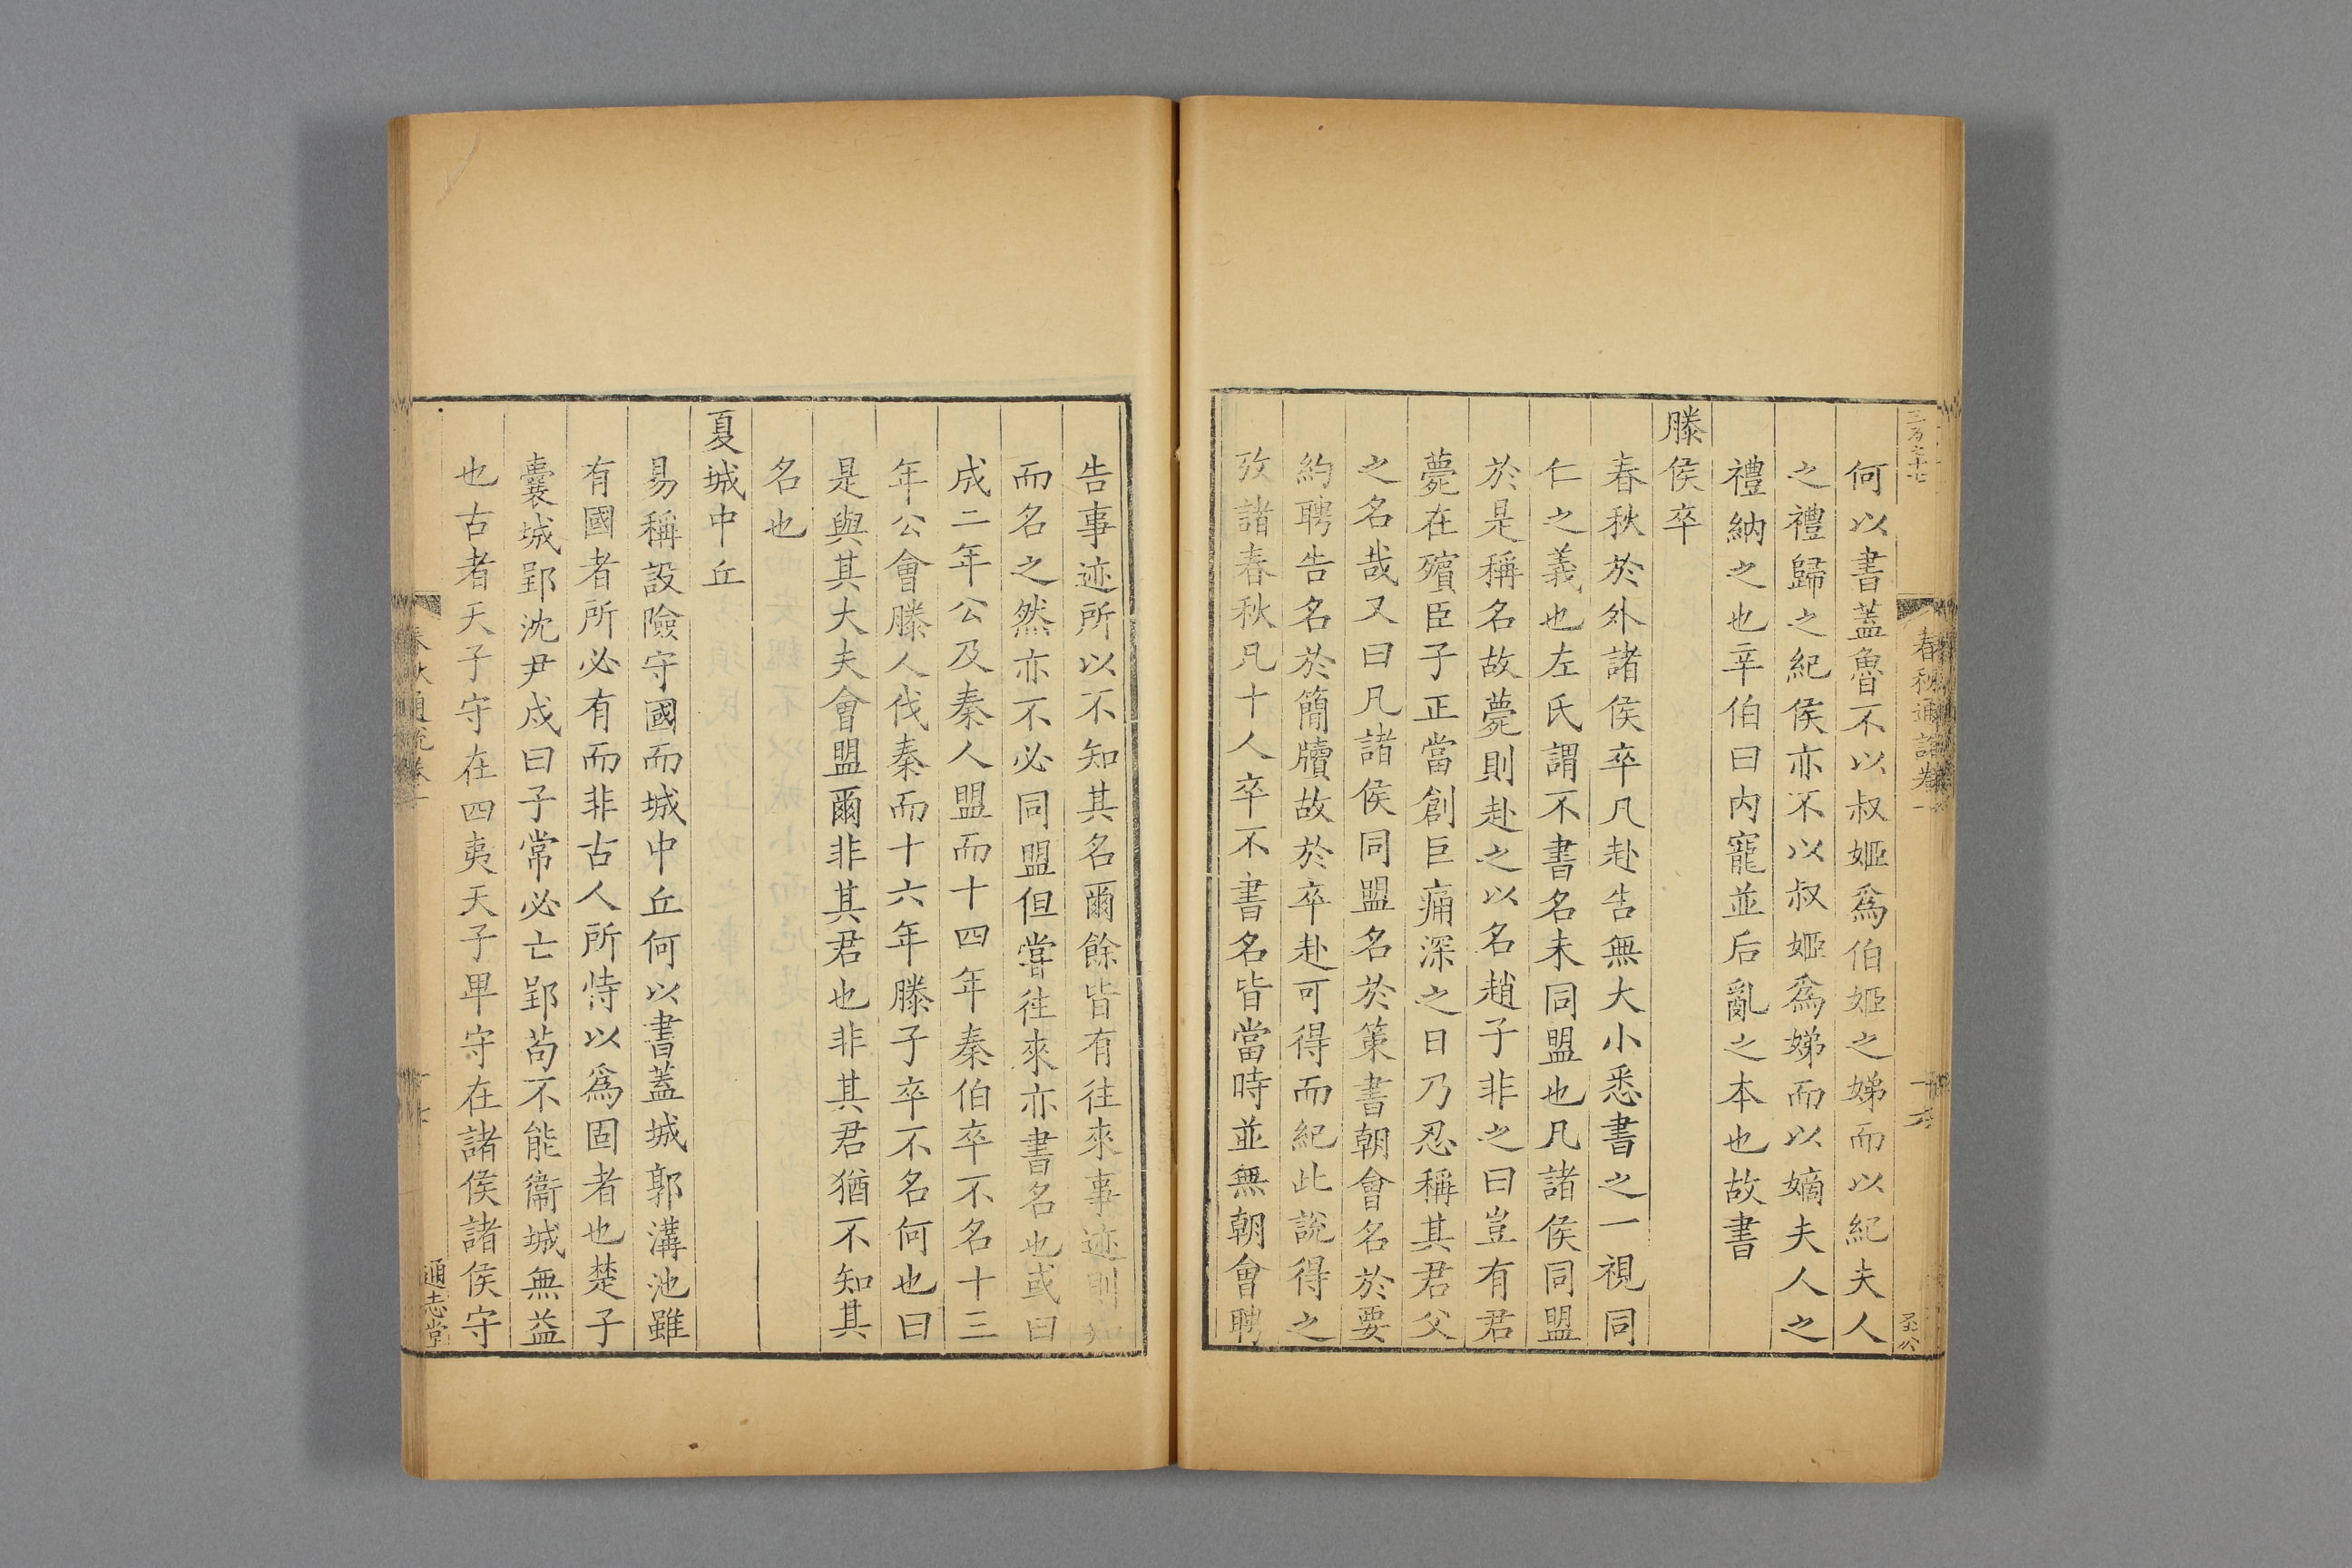 春秋通說卷一
何以書蓋魯不以叔姬爲伯姬之娣而以紀夫人
之禮歸之紀侯亦不以叔姬爲娣而以嫡夫人之
禮納之也辛伯曰内寵並后亂之本也故書
滕侯卒
春秋於外諸侯卒凡赴告無大小悉書之一視同
仁之義也左氏謂不書名未同盟也凡諸侯同盟
於是稱名故薨則赴之以名趙子非之曰豈有君
薨在殯臣子正當創巨痛深之日乃忍稱其君父
之名哉又曰凡諸侯同盟名於策書朝會名於要
約聘告名於簡牘故於卒赴可得而紀此說得之
攷諸春秋凡十人卒不書名皆當時並無朝會聘
告事迹所以不知其名爾餘皆有往來事迹則知
而名之然亦不必同盟但嘗往來亦書名也或曰
成二年公及秦人盟而十四年秦伯卒不名十三
年公會滕人伐秦而十六年滕子卒不名何也曰
是與其大夫會盟爾非其君也非其君猶不知其
名也
夏城中丘
易稱設險守國而城中丘何以書蓋城郭溝池雖
有國者所必有而非古人所恃以爲固者也楚子
囊城郢沈尹戍曰子常必亡郢苟不能衞城無益
也古者天子守在四夷天子卑守在諸侯諸侯守
通志堂